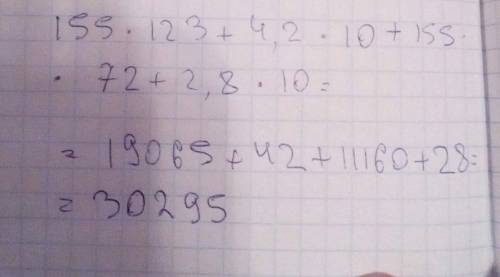 155 · 123 + 4,2 · 10 + 155 ·
· 72 + 2,8 · 10 =
= 19065 + 42 + 11160 + 28 =
= 30295